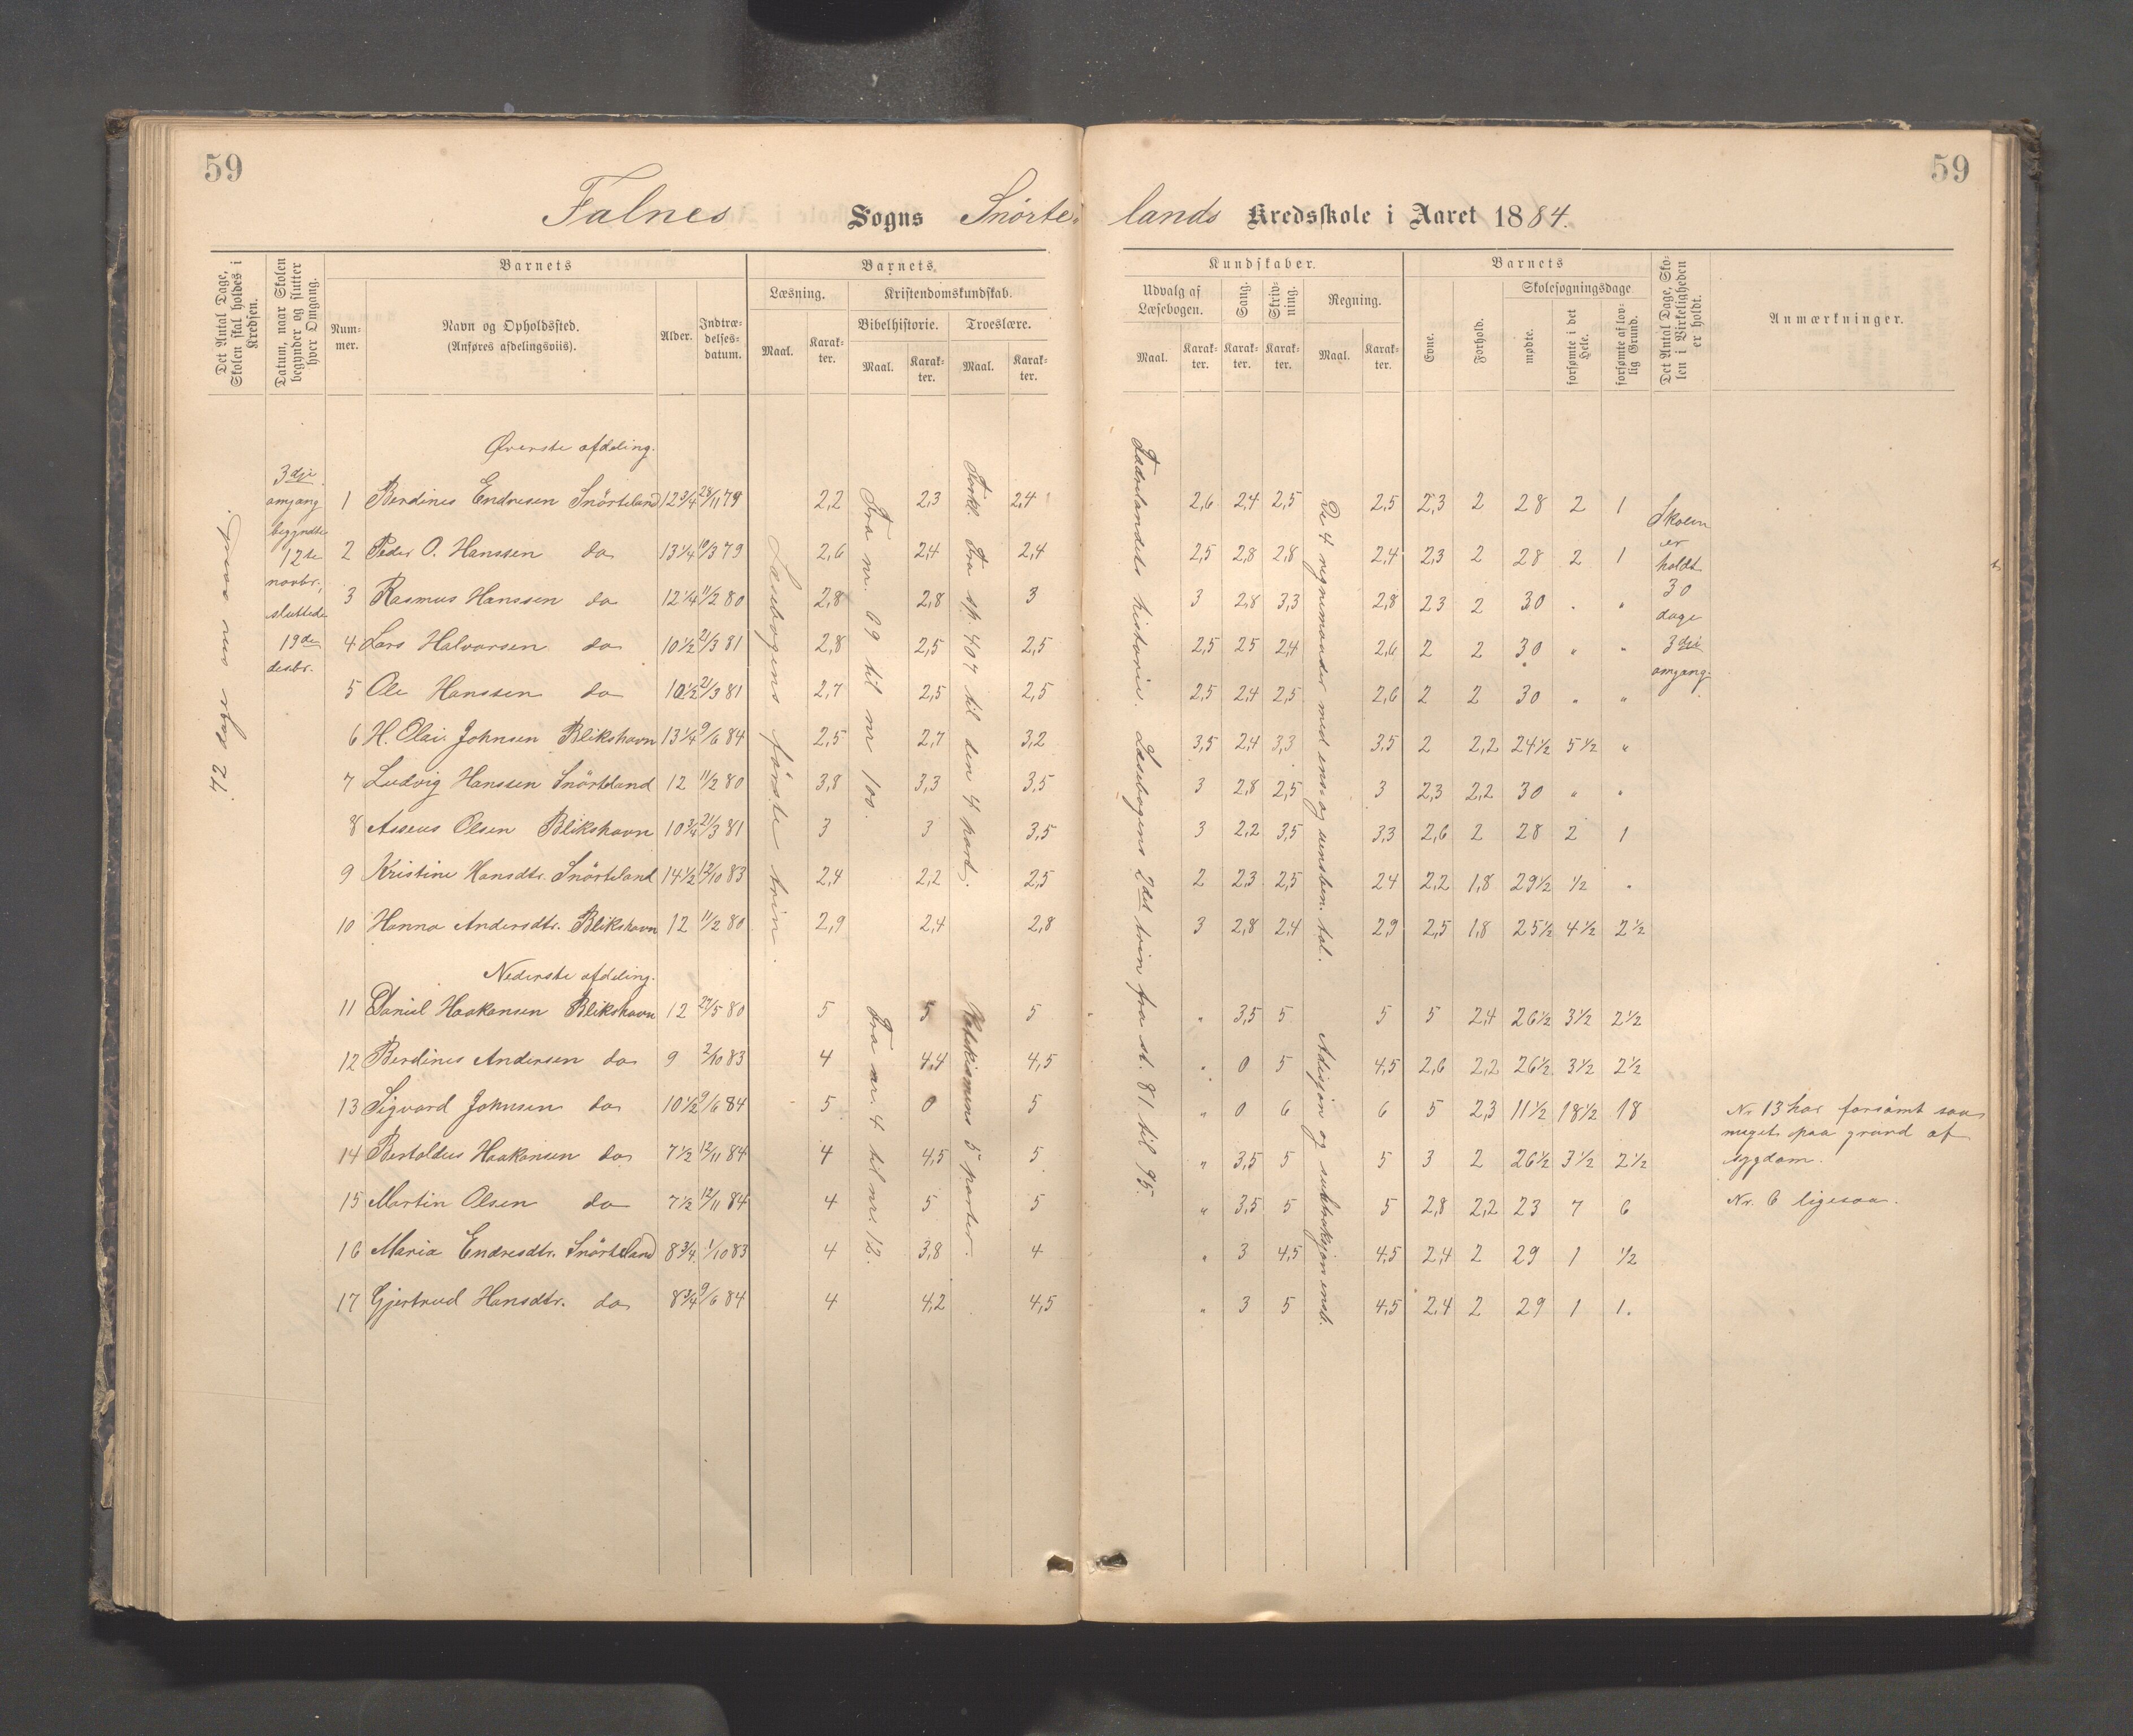 59
59
Falnes Sogns Snörte- lands Kredsskole i Aaret 1884.
Det Antal Dage, Skolen skal holdes i Kredsen.
Datum, naar Skolen begynder og slutter hver Omgang.
Barnets
Nummer.
Navn og Opholdssted.
(Anføres afdelingsviis).
Alder.
Indtrædelsesdatum.
Barnets
Læsning.
Maal.
Karakter.
Kristendomskundskab.
Bibelhistorie.
Maal.
Karakter.
Troeslære.
Maal.
Karakter.
Kundskaber.
Udvalg af Læsebogen.
Maal.
Karakter.
Sang.
Karakter.
Skrivning.
Karakter.
Regning.
Maal.
Karakter.
Barnets
Evne.
Forhold.
Skolesøgningsdage.
mødte.
forsømte i det Hele.
forsømte af lovlig Grund.
Det Antal Dage, Skolen i Virkeligheden er holdt.
Anmærkninger.
72 dage
3dje omgang begyndte 12te novbr., sluttede 19de desbr.
Læsebogens første trin.
Fra nr. 69 til nr 100.
Forkl. Fra sp. 407 til den 4 part.
Fædrelandets historie. Læsebogens 2det trin fra st. 81 til 95.
De 4 regnemaader med ens og uensben. tal.
Skolen er holdt 30 dage 3dje omgang.
Øverste afdeling.
1 Berdines Endresen Snörteland 12 3/4 28/11 79 2,2 2,3 2,4 2,6 2,4 2,5 2,5 2,3 2 28 2 1
2 Peder O. Hanssen do 13 1/4 10/3 79 2,6 2,4 2,4 2,5 2,8 2,8 2,4 2,3 2 28 2 1
3 Rasmus Hanssen do 12 1/4 11/2 80 2,8 2,8 3 3 2,8 3,3 2,8 23 2 30 . "
4 Lars Halvorsen do 10 1/2 21/3 81 2,8 2,5 2,5 2,5 25 2,4 2,6 2 2 30 " "
5 Ole Hanssen do 10 1/2 21/3 81 2,7 2,5 2,5 2,5 2,4 2,5 2,6 2 2 30 " "
6 H. Olai Johnsen Blikshavn 13 1/4 9/6 84 2,5 2,7 3,2 3,5 2,4 3,3 3,5 2 2,2 24 1/2 5 1/2 "
7 Ludvig Hanssen Snörteland 12 11/2 80 3,8 3,3 3,5 3 2,8 2,5 3 2,3 2,2 30 " "
8 Asseus Olsen Blikshavn 10 3/4 21/3 81 3 3 3,5 3 2,2 3,5 3,3 2,6 2 28 2 1
9 Kristine Hansdtr. Snörteland 14 1/2 12/10 83 2,4 2,2 2,5 2 2,3 2,5 24 2,2 1,8 29 1/2 1/2 "
10 Hanna Andersdtr. Blikshavn 12 11/2 80 2,9 2,4 2,8 3 2,8 2,4 29 2,5 1,8 25 1/2 4 1/2 2 1/2
Nederste afdeling.
Fra nr. 4 til nr. 12.
Katekismens 5 parter.
Adisjon og subtraksjon ensb.
11 Daniel Haakonsen Blikshavn 12 27/5 80 5 5 5 " 3,5 5 5 5 2,4 26 1/2 3 1/2 2 1/2
12 Berdines Andersen do 9 2/10 83 4 4,4 4,5 " 0 5 4,5 2,6 2,2 26 1/2 3 1/2 2 1/2
13 Sigvard Johnsen do 10 1/2 9/6 84 5 0 5 " 0 6 6 5 2,3 11 1/2 18 1/2 18
14 Bertoldus Haakonsen do 7 1/2 12/11 84 4 4,5 5 " 3,5 5 5 3 2 26 1/2 3 1/2 2 1/2
15 Martin Olsen do 7 1/2 12/11 84 4 5 5 " 3,5 5 5 2,8 2,2 23 7 6
16 Maria Endresdtr. Snörteland 8 3/4 1/10 83 4 3,8 4 " 3 4,5 4,5 2,4 2 29 1 1/2
17 Gjertrud Hansdtr. do 8 3/4 9/6 84 4 4,2 4,5 " 3 5 4,5 2,4 2 29 1 1.
Nr 13 har forsömt saa
meget paa grund af
sygdom.
Nr. 6 ligesaa.